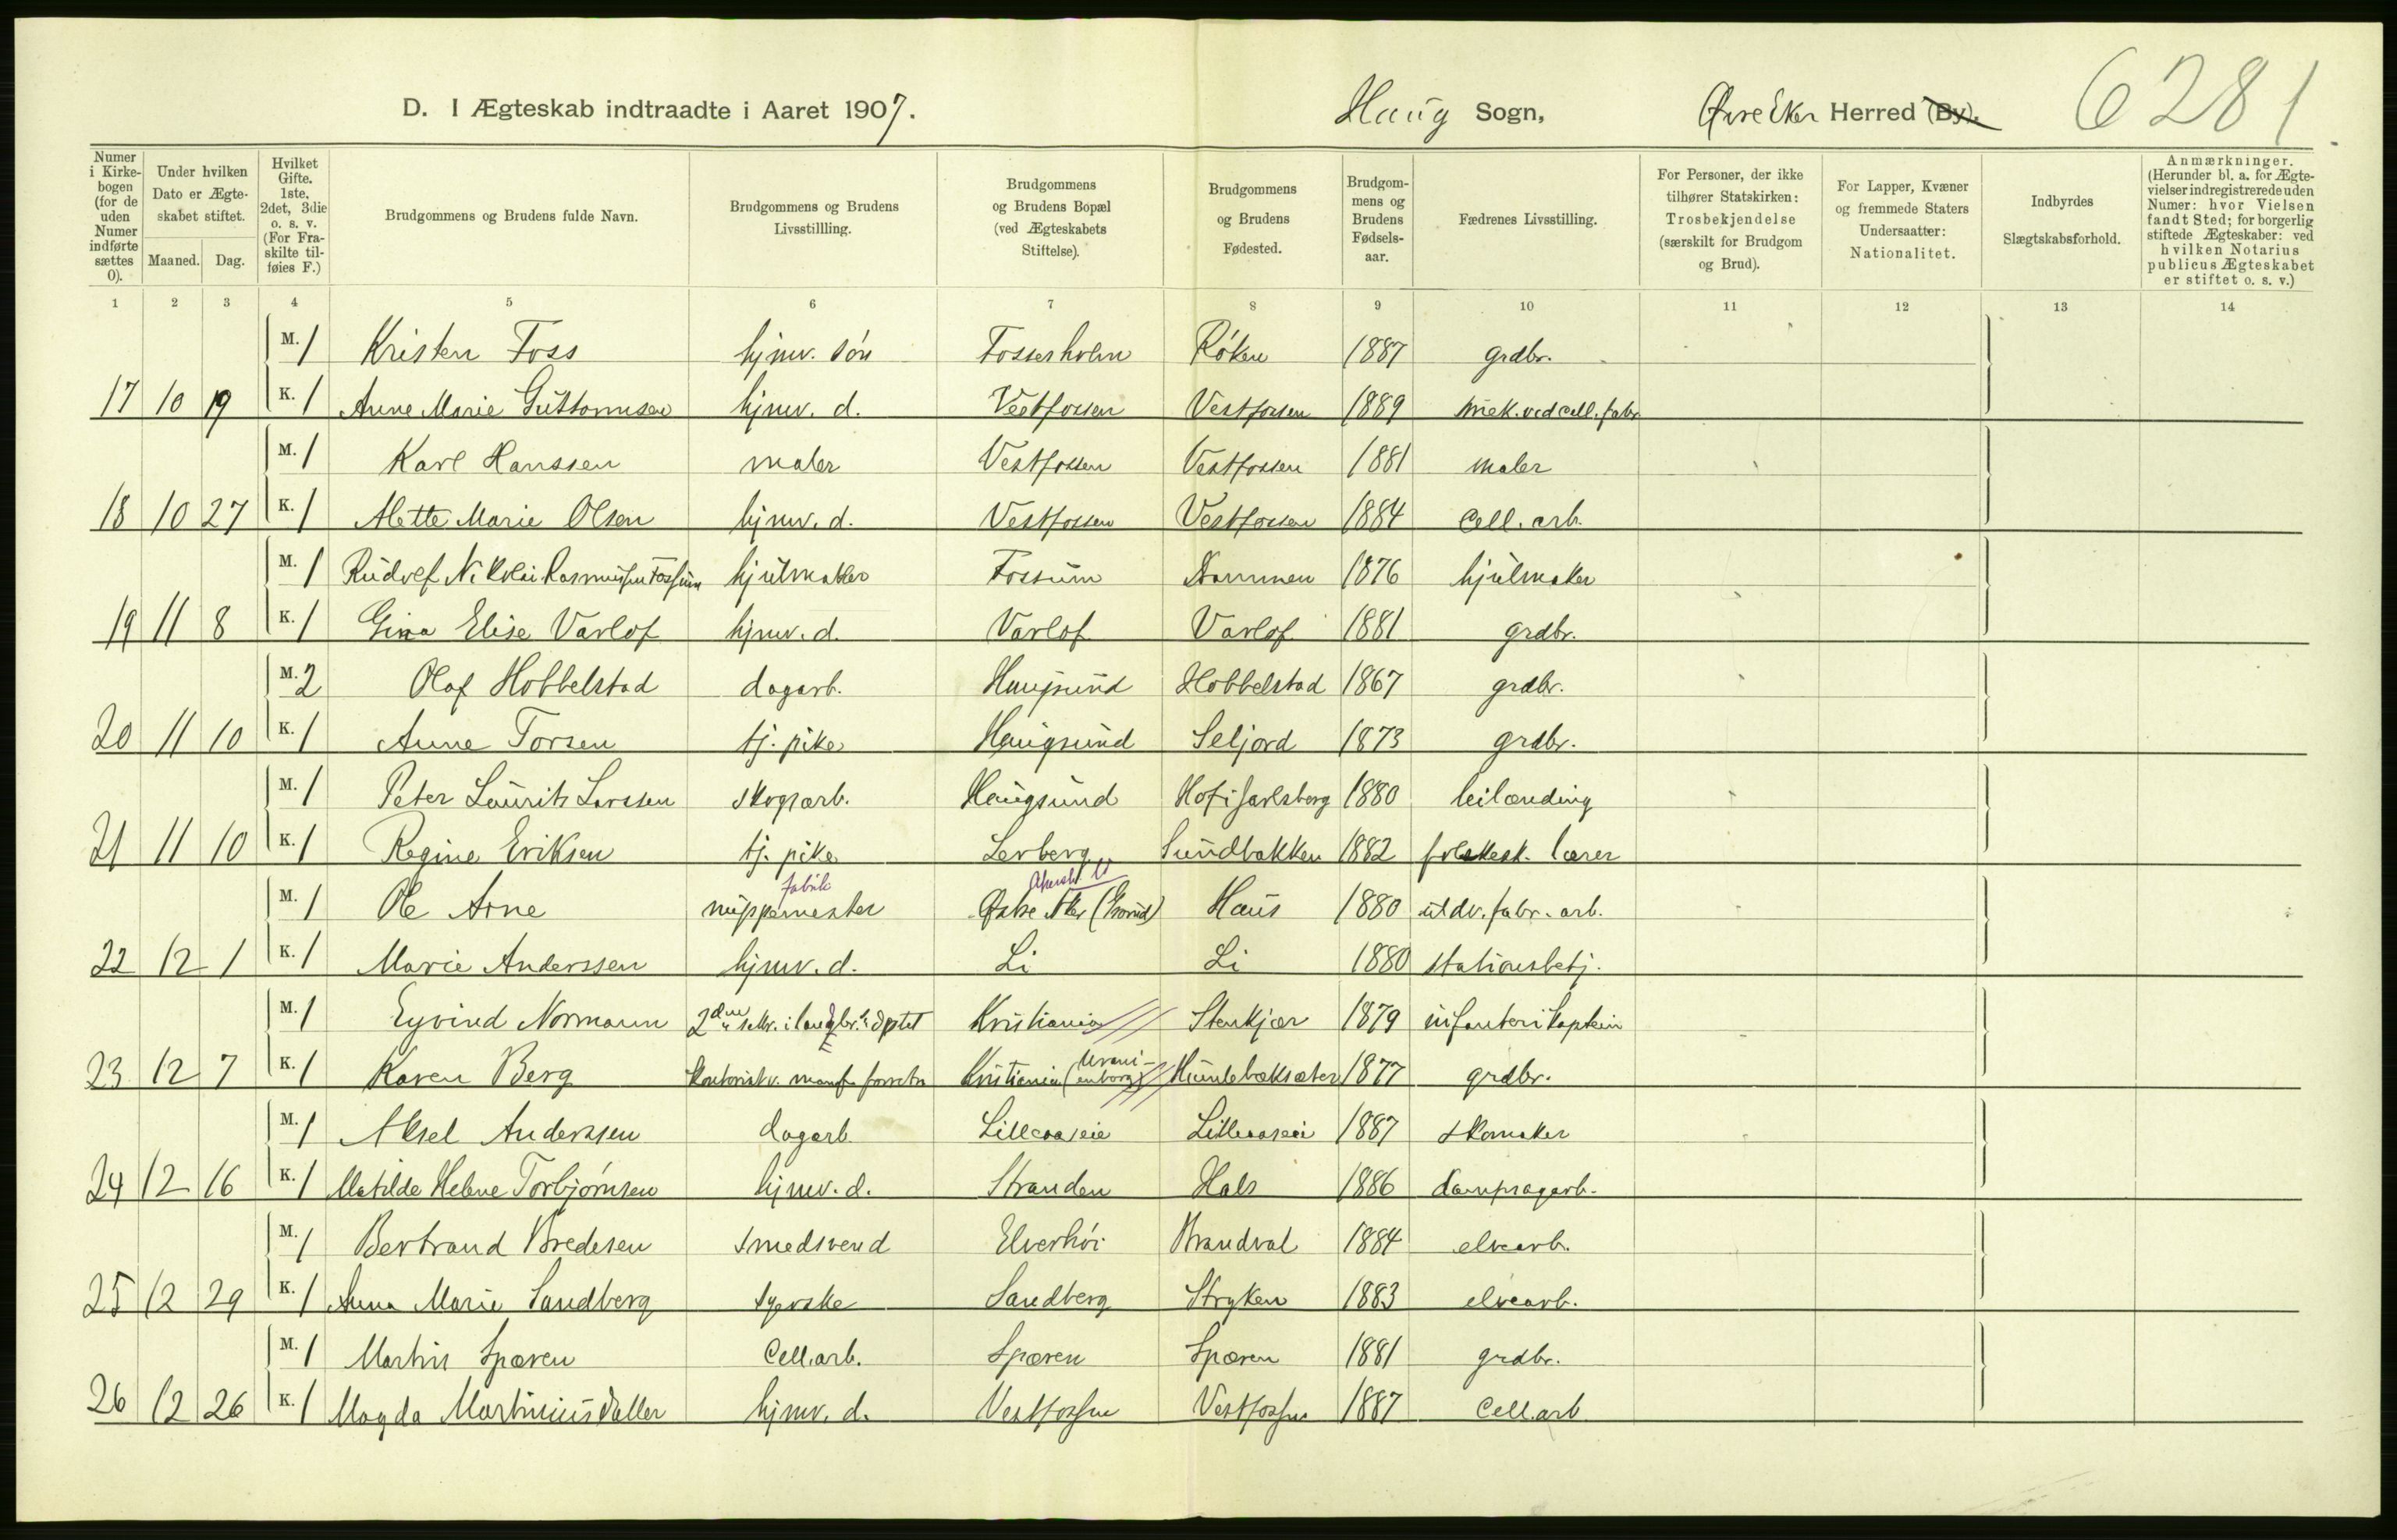 D. I Ægteskab indtraadte i Aaret 1907. Haug Sogn, Øvre Eker Herred (By). 6281
Numer i Kirkebogen (for de uden Numer indførte sættes 0). Under hvilken Dato er Ægteskabet stiftet. Maaned. Dag. Hvilket Gifte. 1ste, 2det, 3die o. s. v. (For Fraskilte tilføies F.) Brudgommens og Brudens fulde Navn. Brudgommens og Brudens Livsstillling. Brudgommens og Brudens Bopæl (ved Ægteskabets Stiftelse). Brudgommens og Brudens Fødested. Brudgommens og Brudens Fødselsaar. Fædrenes Livsstilling. For Personer, der ikke tilhører Statskirken: Trosbekjendelse (særskilt for Brudgom og Brud). For Lapper, Kvæner og fremmede Staters Undersaatter: Nationalitet. Indbyrdes Slægtskabsforhold. Anmærkninger. (Herunder bl. a. for Ægtevielser indregistrerede uden Numer: hvor Vielsen fandt Sted; for borgerlig stiftede Ægteskaber: ved hvilken Notarius publicus Ægteskabet er stiftet o. s. v.)
1 2 3 4 5 6 7 8 9 10 11 12 13 14
M. 1 Kristen Foss hjmv. søn Fossesholm Røken 1887 grdbr.
17 10 19 K. 1 Anne Marie Guttormsen hjmv. d. Vestfossen Vestfossen 1889 mek. ved cell. fabr
M. 1 Karl Hanssen maler Vestfossen Vestfossen 1881 maler
18 10 27 K. 1 Alette Marie Olsen hjmv. d. Vestfossen Vestfossen 1884 Cell. arb.
M. 1 Rudolf Nikolai Rasmussen Fossum hjulmaker Fossum Drammen 1876 hjulmaker
19 11 8 K. 1 Gina Elise Varlof hjmv. d. Varlof Varlof 1881 grdbr.
M. 2 Olaf Hobbelstad dagarb. Haugsund Hobbelstad 1867 grdbr.
20 11 10 K. 1 Anne Torsen tj. pike Haugsund Seljord 1873 grdbr.
M. 1 Peter Laurits Larssen skogsarb. Haugsund Hof i Jarlsberg 1880 leilænding
21 11 10 K. 1 Regine Eriksen tj. pike Lerberg Sundbakken 1882 folkesk. lærer
fabrik Akersh.
M. 1 Ole Arne nuppemester Østre Aker (Grorud) Haus 1880 utdv. fabr. arb.
22 12 1 K. 1 Marie Anderssen hjmv. d. Li Li 1880 stationsbetj.
M. 1 Eyvind Normann 2den sekr. i landbr. dptet Kristiania Stenkjær 1879 infanterikaptein
23 12 7 K. 1 Karen Berg Kontorist v. manuf. forretn Kristiania (Uranienborg) Humlebæksæter 1877 grdbr.
M. 1 Aksel Anderssen dagarb. Lilleaaseie Lilleaaseie 1887 skomaker
24 12 16 K. 1 Matilde Helene Torbjørnsen hjmv. d. Stranden Hals 1886 dampsagarb.
M. 1 Bertrand Bredesen smedsvend Elverhøi Brandval 1884 elvearb.
25 12 29 K. 1 Anna Marie Sandberg syerske Sandberg Stryken 1883 elvearb.
M. 1 Martin Spæren Cell.arb. Spæren Spæren 1881 grdbr.
26 12 26 K. 1 Magda Martinius datter hjmv. d. Vestfossen Vestfossen 1887 Cell.arb